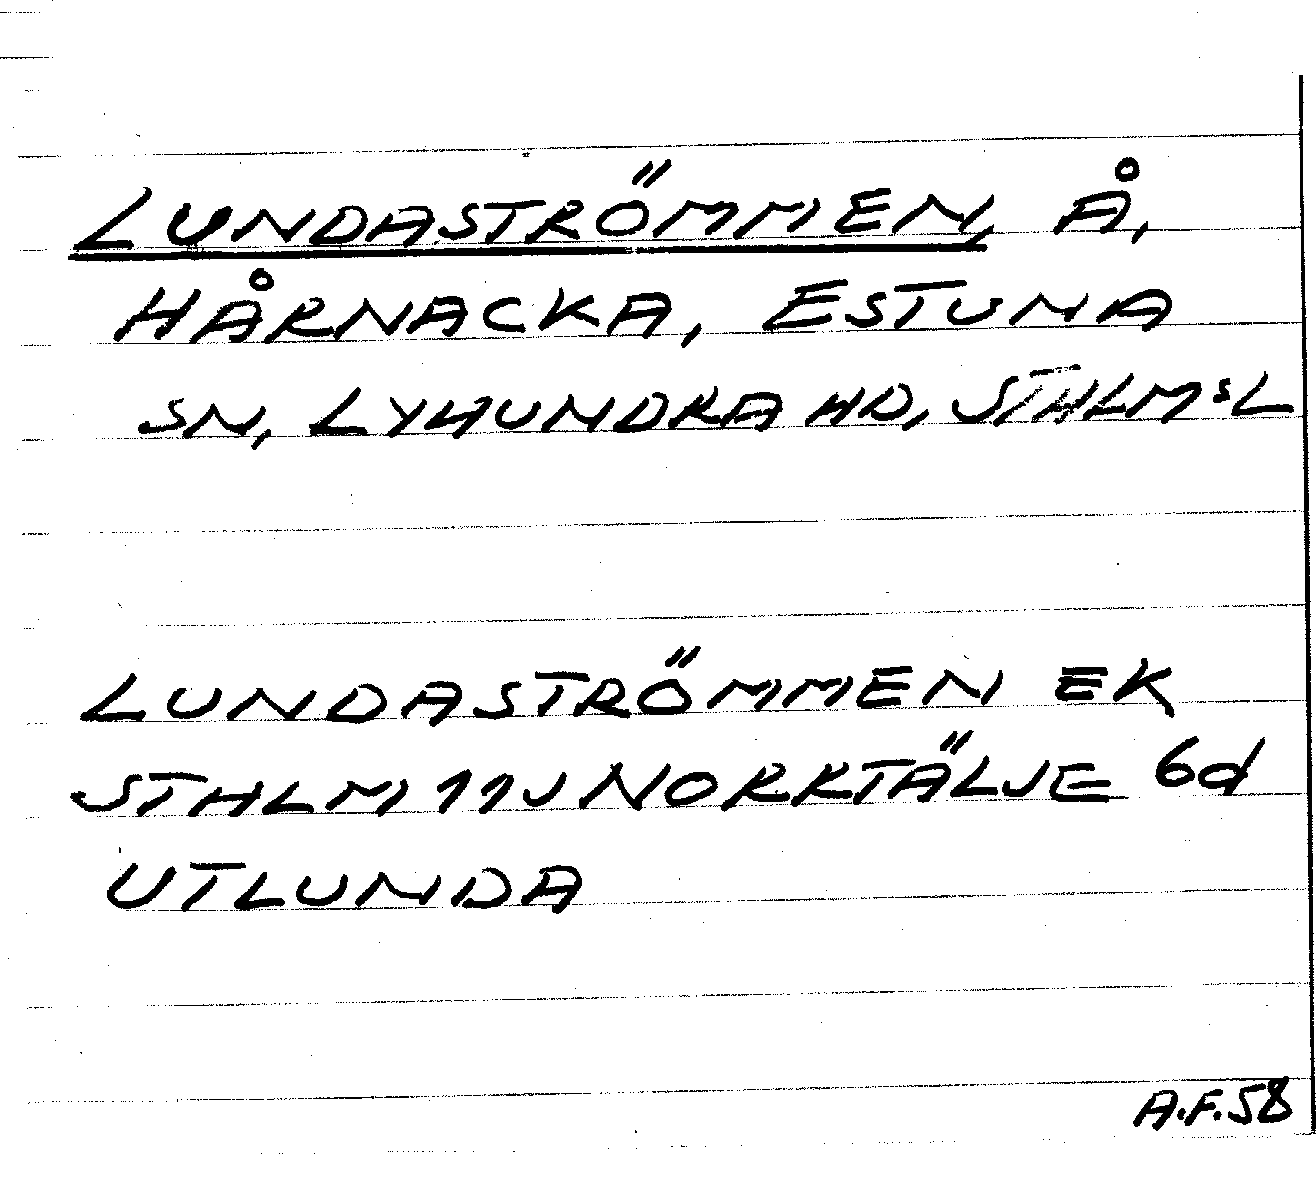 LUNDASTRÖMMEN, Å,
HÅRNACKA, ESTUNA
SN, LYHUNDRA HD, STHLMSL
LUNDASTRÖMMEN EK
STHLM 11J NORRTÄLJE 6d
UTLUNDA
A.F.58